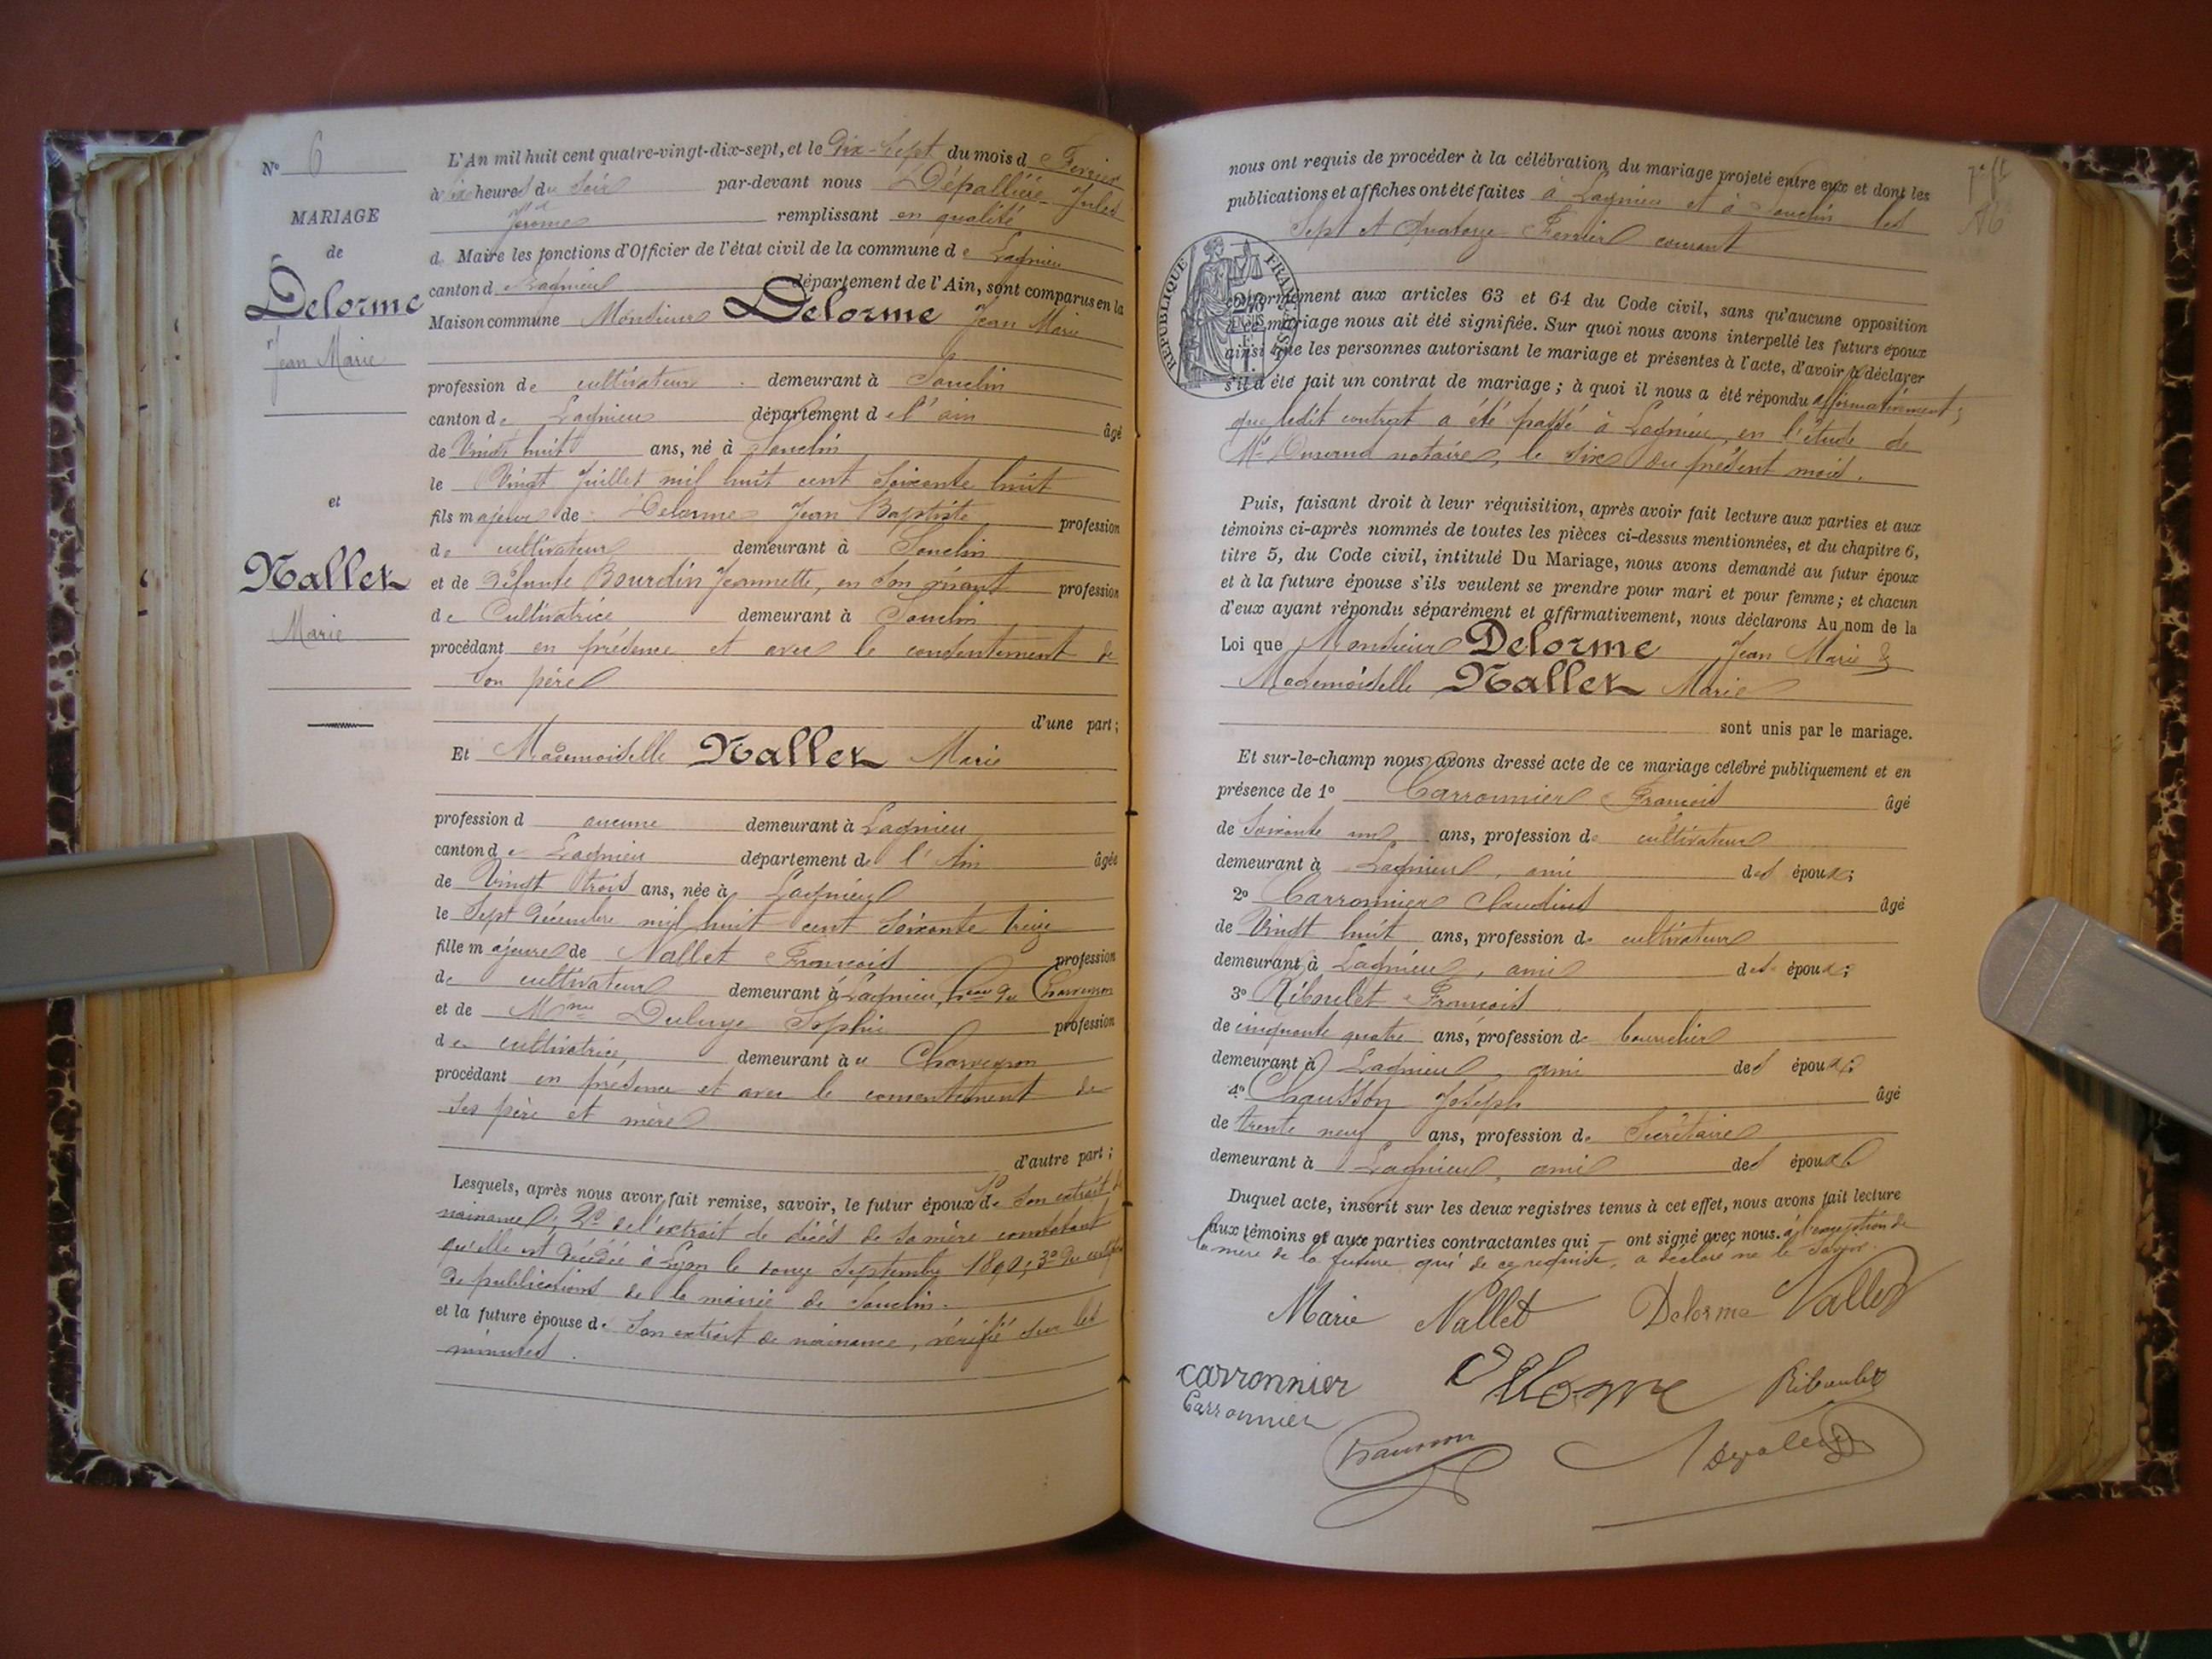 N° 6
MARIAGE
de
Delorme
Jean Marie
et
Nallet
Marie
L'An mil huit cent quatre-vingt-dix-sept, et le Dix-Sept du mois de Fevrier
à six heures du soir par-devant nous Dépallière Jules
Jérome remplissant en qualité
de Maire les fonctions d'Officier de l'état civil de la commune de Lagnieu
canton de Lagnieu département de l'Ain, sont comparus en la
Maison commune Monsieur Delorme Jean Marie
profession de cultivateur demeurant à Souclin
canton de Lagnieu département de l'ain âgé
de Vingt huit ans, né à Souclin
le Vingt Juillet mil huit cent soixante huit
fils majeur de Delorme Jean Baptiste profession
de cultivateur demeurant à Souclin
et de défunte Bourdin Jeannette, en son vivant profession
de Cultivatrice demeurant à Souclin
procédant en présence et avec le consentement de
son père
d'une part;
Et Mademoiselle Nallet Marie
profession d aucune demeurant à Lagnieu
canton de Lagnieu département de l'Ain âgée
de Vingt trois ans, née à Lagnieu
le Sept Décembre mil huit cent soixante treize
fille majeure de Nallet François profession
de cultivateur demeurant à Lagnieu, hau du Charveyron
et de Mme Duluye Sophie profession
de cultivatrice, demeurant au Charveyron
procédant en présence et avec le consentement de
ses père et mère
d'autre part;
Lesquels, après nous avoir fait remise, savoir, le futur époux 1° de son extrait de
naissance; 2° de l'extrait de décès de sa mère constatant
qu'elle est décédée à Lyon le Septembre 3° du
de publications de la mairie de Souclin.
et la future épouse de son extrait de naissance, vérifié sur les
minutes.
nous ont requis de procéder à la célébration du mariage projeté entre eux et dont les
publications et affiches ont été faites à Lagnieu et à Souclin les
Sept et Quatorze Fevrier courant
REPUBLIQUE FRANÇAISE
conformément aux articles 63 et 64 du Code civil, sans qu'aucune opposition
à ce mariage nous ait été signifiée. Sur quoi nous avons interpellé les futurs époux
ainsi que les personnes autorisant le mariage et présentes à l'acte, d'avoir à déclarer
s'il a été fait un contrat de mariage; à quoi il nous a été répondu affirmativement;
que ledit contrat a été passé à Lagnieu, en l'étude de
Me Durand notaire, le six du présent mois.
Puis, faisant droit à leur réquisition, après avoir fait lecture aux parties et aux
témoins ci-après nommés de toutes les pièces ci-dessus mentionnées, et du chapitre 6,
titre 5, du Code civil, intitulé Du Mariage, nous avons demandé au futur époux
et à la future épouse s'ils veulent se prendre pour mari et pour femme; et chacun
d'eux ayant répondu séparément et affirmativement, nous déclarons Au nom de la
Loi que Monsieur Delorme Jean Marie &
Mademoiselle Nallet Marie
sont unis par le mariage.
Et sur-le-champ nous avons dressé acte de ce mariage célébré publiquement et en
présence de 1° Carronnier François âgé
de Soixante un ans, profession de cultivateur
demeurant à Lagnieu, ami des époux;
2° Carronnier Claudius âgé
de Vingt huit ans, profession de cultivateur
demeurant à Lagnieu, ami des époux;
3° Riboulet François
de cinquante quatre ans, profession de bourrelier
demeurant à Lagnieu, ami des époux;
4° Chausson Joseph âgé
de trente neuf ans, profession de Secrétaire
demeurant à Lagnieu, ami des époux
Duquel acte, inscrit sur les deux registres tenus à cet effet, nous avons fait lecture
aux témoins et aux parties contractantes qui — ont signé avec nous. à l'exception de
la mère de la future qui de ce requise, a déclaré ne le savoir.
Marie Nallet Delorme Nallet
carronnier Delorme Riboulet
Carronnier
Chausson Dépallière